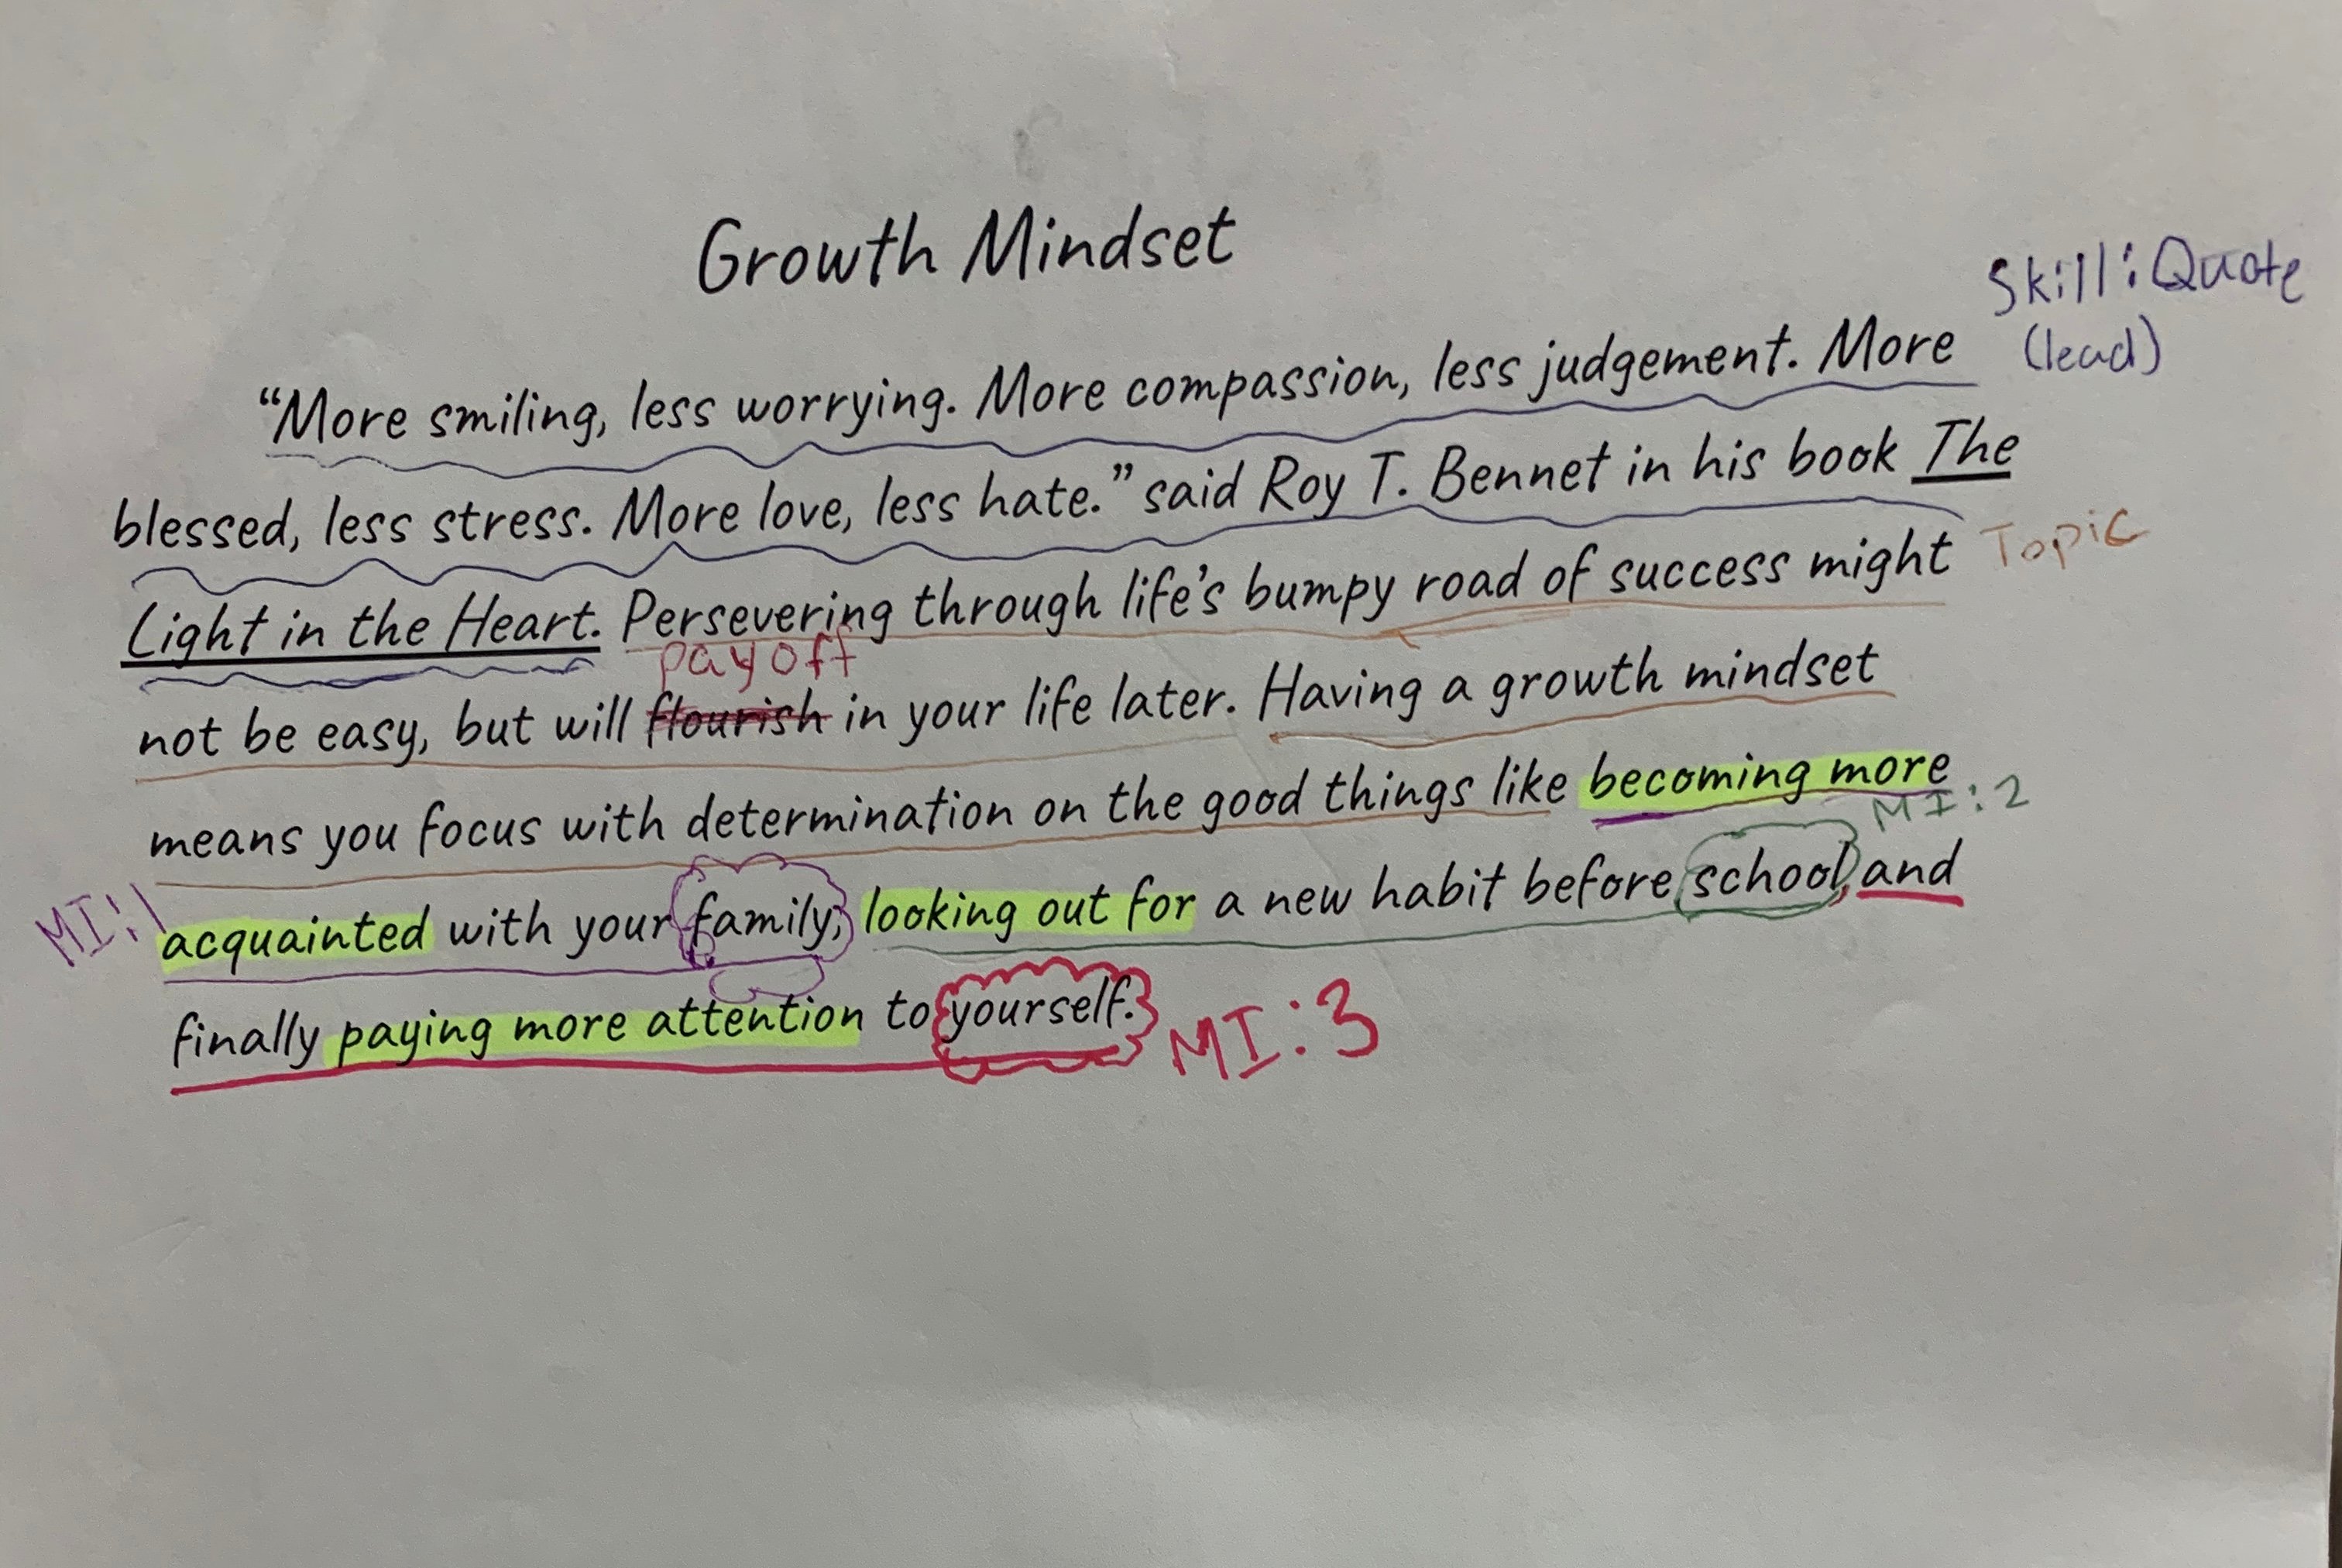 Growth Mindset
Skill: Quote
(lead)
“More smiling, less worrying. More compassion, less judgement. More
blessed, less stress. More love, less hate.” said Roy T. Bennet in his book The
Topic
Light in the Heart. Persevering through life’s bumpy road of success might
payoff
not be easy, but will flourish in your life later. Having a growth mindset
means you focus with determination on the good things like becoming more
MI:2
MI:1
acquainted with your family, looking out for a new habit before school, and
finally paying more attention to yourself.
MI:3